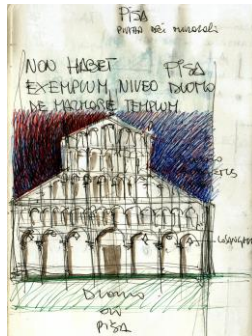 PISA
PIAZZA DEI MIRACOLI
NON HABET PISA
EXEMPLUM, NIVEO DUOMO
DE MARMORE TEMPLUM
LOSANGHE
DUOMO
DI
PISA